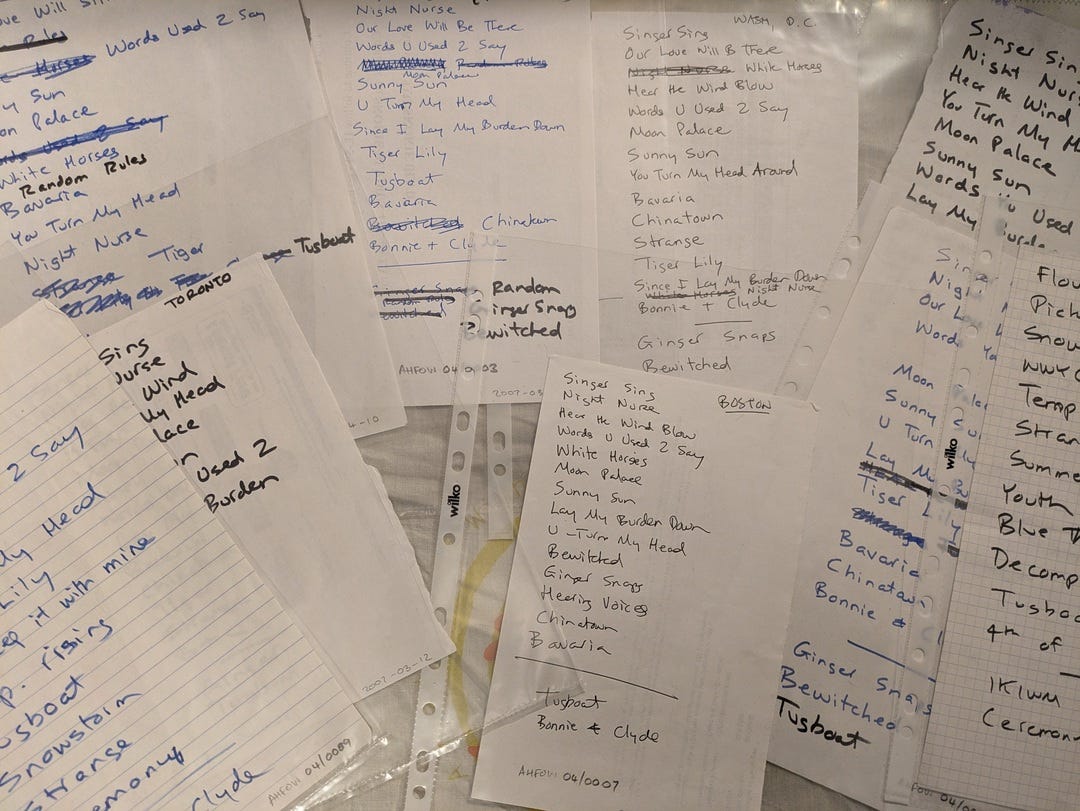 Words Used 2 Say
Sun
Palace
White Horses
Random Rules
Bavaria
You Turn My Head
Night Nurse
Tiger
Tugboat
Night Nurse
Our Love Will Be There
Words U Used 2 Say
Moon Palace
Sunny Sun
U Turn My Head
Since I Lay My Burden Down
Tiger Lily
Tugboat
Bavaria
Bewitched Chinatown
Bonnie + Clyde
Ginger Snaps
Random Rules
Bewitched
Random
Ginger Snaps
Bewitched
WASH, D.C.
Singer Sing
Our Love Will B There
Night Nurse White Horses
Hear the Wind Blow
Words U Used 2 Say
Moon Palace
Sunny Sun
You Turn My Head Around
Bavaria
Chinatown
Strange
Tiger Lily
Since I Lay My Burden Down
White Horses Night Nurse
Bonnie + Clyde
Ginger Snaps
Bewitched
Singer Sin
Night Nurs
Hear the Wind
You Turn My H
Moon Palace
Sunny Sun
Words U Used
Lay My Burde
TORONTO
Sing
Nurse
Wind
My Head
lace
Used 2
Burden
2007-03-12
2 Say
My Head
Lily
keep it with mine
rising
Tugboat
Snowstorm
Strange
Clyde
AHFOW 04/0089
wilko
BOSTON
Singer Sing
Night Nurse
Hear the Wind Blow
Words U Used 2 Say
White Horses
Moon Palace
Sunny Sun
Lay My Burden Down
U-Turn My Head
Bewitched
Ginger Snaps
Hearing Voices
Chinatown
Bavaria
Tugboat
Bonnie & Clyde
AHFOW 04/0007
Sing
Nigh
Our Lo
Word
Moon
Sunny
U Turn
Lay My Bu
Tiger Lily
Bavaria
Chinatown
Bonnie &
Ginger Snaps
Bewitched
Tugboat
wilko
Flow
Pict
Snow
WWYC
Temp
Stran
Summe
Youth
Blue T
Decomp
Tugboa
4th of
IKIWM
Ceremon